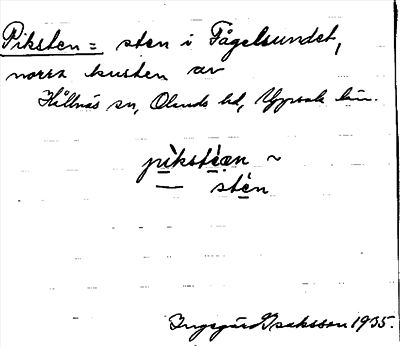 Piksten = sten i Fågelsundet,
norra kusten av
Hållnäs sn, Olands hd, Uppsala län.
pìkstèæn ~
— stèn
Ingegärd Isaksson 1935.